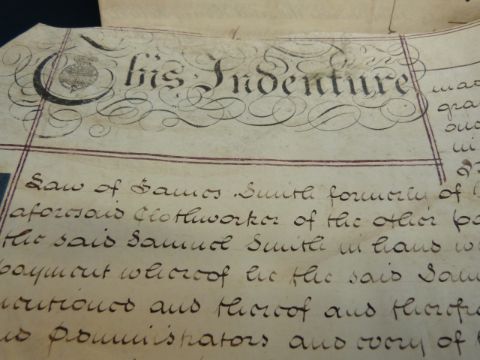 This Indenture
mad
gra
and
in
Law of James Smith formerly of
aforesaid Clothworker of the other pa
the said Samuel Smith in hand w
payment whereof he the said Sam
mentioned and thereof and therefro
and Administrators and every of